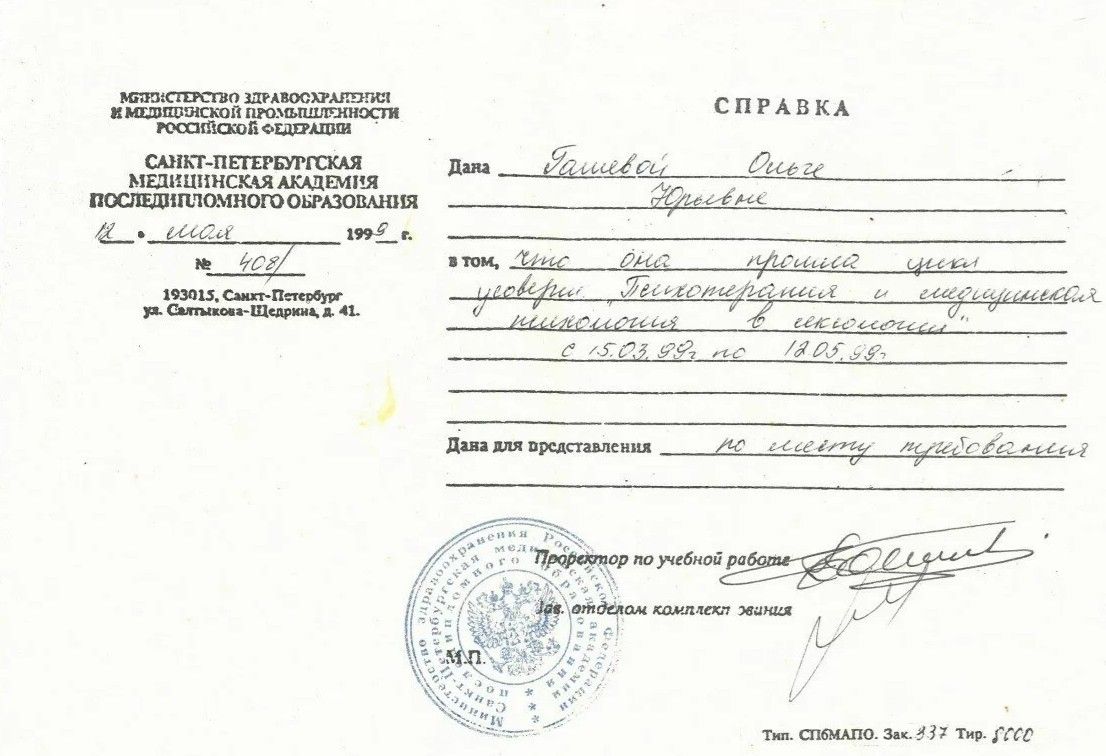 МИНИСТЕРСТВО ЗДРАВООХРАНЕНИЯ
И МЕДИЦИНСКОЙ ПРОМЫШЛЕННОСТИ
РОССИЙСКОЙ ФЕДЕРАЦИИ
САНКТ-ПЕТЕРБУРГСКАЯ
МЕДИЦИНСКАЯ АКАДЕМИЯ
ПОСЛЕДИПЛОМНОГО ОБРАЗОВАНИЯ
12 • мая 1999 г.
№ 408/
193015, Санкт-Петербург
ул. Салтыкова-Щедрина, д. 41.
СПРАВКА
Дана Гашевой Ольге
Юрьевне
в том, что она прошла цикл
усоверш „Психотерапия и медицинская
психология в сексологии"
с 15.03.99г по 12.05.99г
Дана для представления по месту требования
Проректор по учебной работе
Зав. отделом комплект звиния
М.П.
Министерство здравоохранения Российской Федерации
Санкт-Петербургская медицинская академия
последипломного образования
Тип. СПбМАПО. Зак. 337 Тир. 8000